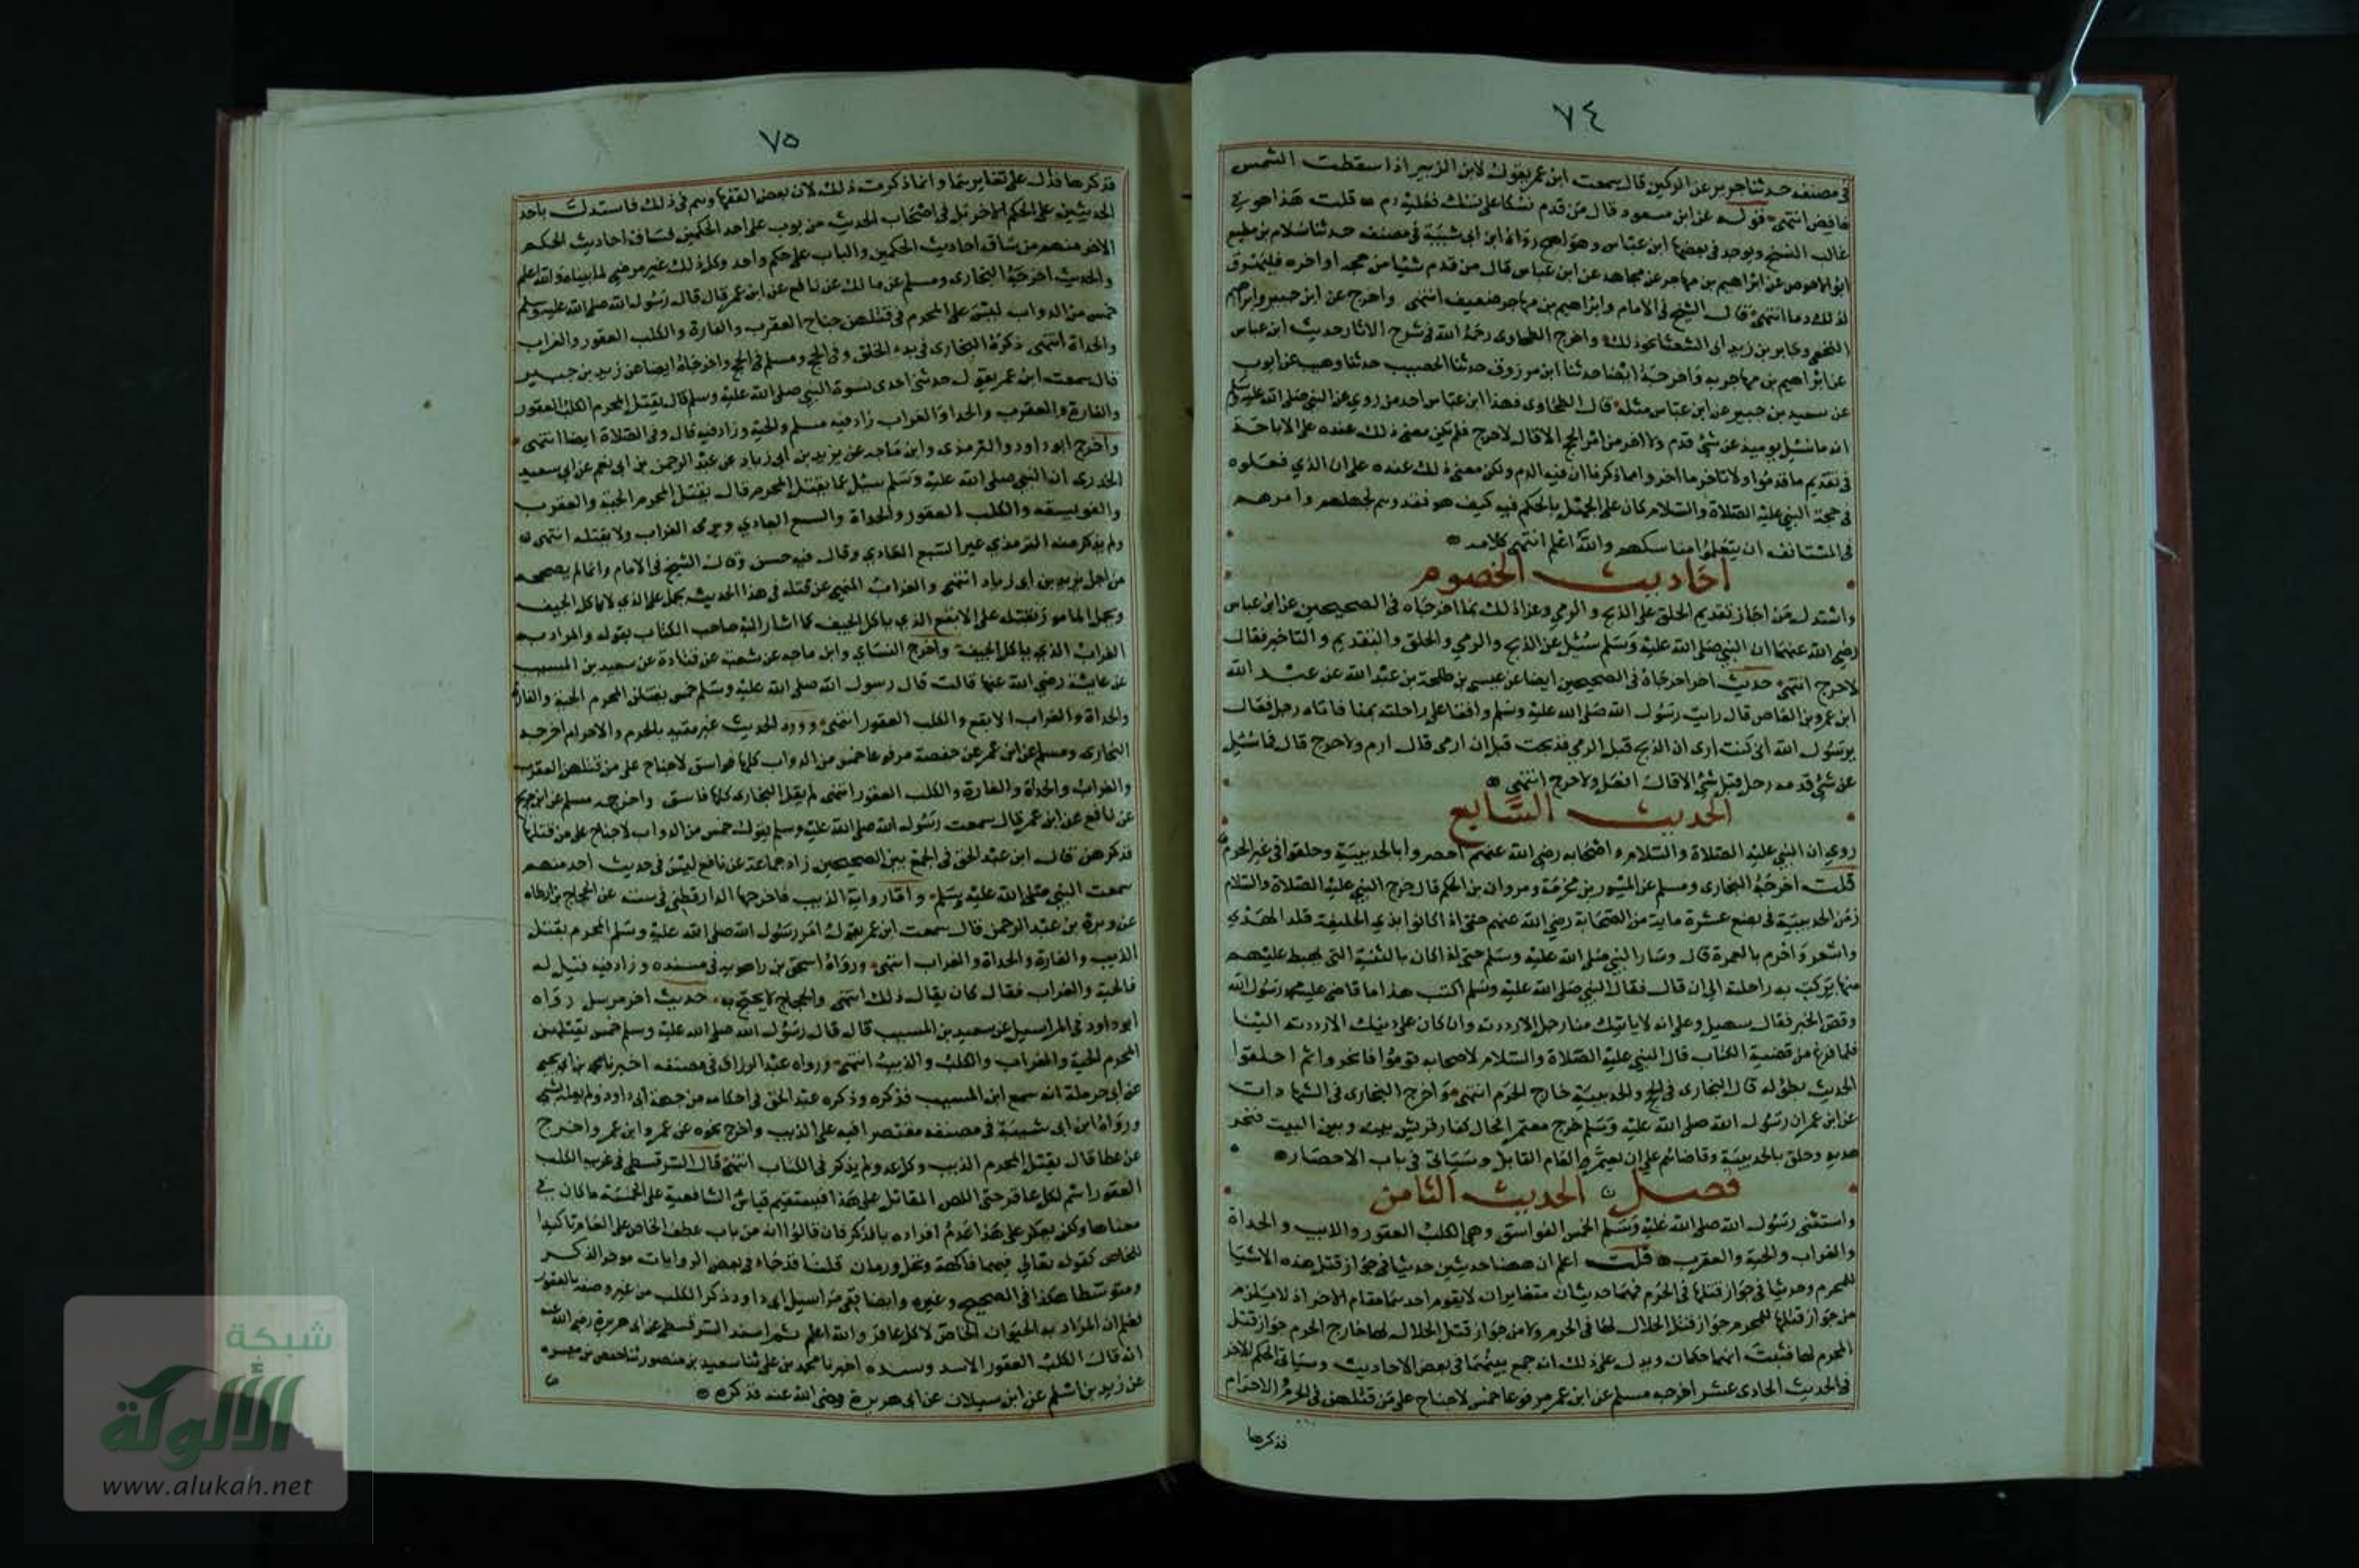 ٧٤
في مصنفه حدثنا جرير عن الركين قال سمعت ابن عمر يقول لابن الزبير اذا سقطت الشمس
فافض انتهى قوله عن ابن مسعود قال من قدم نسكا على نسك فعليه دم قلت هذا هو في
غالب النسخ ويوجد في بعضها ابن عباس وهو اصح رواه ابن ابي شيبة في مصنفه حدثنا سلام بن مطيع
ابو الاحوص عن ابراهيم بن مهاجر عن مجاهد عن ابن عباس قال من قدم شيئا من حجه او اخره فليهرق
لذلك دما انتهى قال الشيخ في الامام وابراهيم بن مهاجر ضعيف انتهى واخرج عن ابن جبير وابراهيم
النخعي وجابر بن زيد ابي الشعثا نحو ذلك واخرج الطحاوي رحمه الله في شرح الاثار حديث ابن عباس
عن ابراهيم بن مهاجر به واخرجه ايضا حدثنا ابن مرزوق حدثنا الخصيب حدثنا وهيب عن ايوب
عن سعيد بن جبير عن ابن عباس مثله قال الطحاوي فهذا ابن عباس احد من روي عن النبي صلى الله عليه وسلم
انه ما سئل يوميذ عن شئ قدم ولا اخر من امر الحج الا قال لا حرج فلم يكن معنى ذلك عنده على الاباحة
في تقديم ما قدموا ولا تاخير ما اخروا مما ذكرنا ان فيه الدم ولكن معنى ذلك عنده على ان الذي فعلوه
في حجة النبي عليه الصلاة والسلام كان على الجهل بالحكم فيه كيف هو فعذرهم لجهلهم وامرهم
في المستانف ان يتعلموا مناسكهم والله اعلم انتهى كلامه
احاديث الخصوم
واستدل من اجاز تقديم الحلق على الذبح والرمي وعزا ذلك بما اخرجاه في الصحيحين عن ابن عباس
رضي الله عنهما ان النبي صلى الله عليه وسلم سئل عن الذبح والرمي والحلق والتقديم والتاخير فقال
لا حرج انتهى حديث اخر اخرجاه في الصحيحين ايضا عن عيسى بن طلحة بن عبد الله عن عبد الله
ابن عمرو بن العاص قال رايت رسول الله صلى الله عليه وسلم واقفا على راحلته بمنا فاتاه رجل فقال
يرسول الله اني كنت ارى ان الذبح قبل الرمي فذبحت قبل ان ارمي قال ارم ولا حرج قال فما سئل
عن شئ قدمه رجل قبل شئ الا قال افعل ولا حرج انتهى
الحديث السابع
روي ان النبي عليه الصلاة والسلام واصحابه رضي الله عنهم احصروا بالحديبية وحلقوا في غير الحرم
قلت اخرجه البخاري ومسلم عن المسور بن مخرمة ومروان بن الحكم قال خرج النبي عليه الصلاة والسلام
زمن الحديبية في بضع عشرة ماية من الصحابة رضي الله عنهم حتى اذا كانوا بذي الحليفة قلد الهدي
واشعر واحرم بالعمرة قال وسار النبي صلى الله عليه وسلم حتى اذا كان بالثنية التي يهبط عليهم
منها بركت به راحلته الى ان قال فقال النبي صلى الله عليه وسلم اكتب هذا ما قاضى عليه محمد رسول الله
وقص الخبر فقال سهيل وعلى انه لا ياتيك منا رجل الا رددته وان كان على دينك الا رددته الينا
فلما فرغ من قضية الكتاب قال النبي عليه الصلاة والسلام لاصحابه قوموا فانحروا ثم احلقوا
الحديث بطوله قال البخاري في الحج والحديبية خارج الحرم انتهى واخرج البخاري في الشهادات
عن ابن عمر ان رسول الله صلى الله عليه وسلم خرج معتمرا فحال كفار قريش بينه وبين البيت فنحر
هديه وحلق بالحديبية وقاضاهم على ان يعتمر العام القابل وسياتي في باب الاحصار
فصل الحديث الثامن
واستثنى رسول الله صلى الله عليه وسلم الخمس الفواسق وهي الكلب العقور والذيب والحداة
والغراب والحية والعقرب قلت اعلم ان ههنا حديثين حديثا في جواز قتل هذه الاشيا
للمحرم وحديثا في جواز قتلها في الحرم فهما حديثان متغايران لا يقوم احدهما مقام الاخر اذ لا يلزم
من جواز قتلها للمحرم جواز قتل الحلال لها في الحرم ولا من جواز قتل الحلال لها خارج الحرم جواز قتل
المحرم لها فثبت انهما حكمان ويدل على ذلك انه جمع بينهما في بعض الاحاديث وسياتي الحكم الاخر
في الحديث الحادي عشر اخرجه مسلم عن ابن عمر مرفوعا خمس لا جناح على من قتلهن في الحرم والاحرام
فذكرها
٧٥
فذكرها فدل على تغايرهما وانما ذكرت ذلك لان بعض الفقها وهم في ذلك فاستدل باحد
الحديثين على الحكم الاخر بل في اصحاب الحديث من بوب على احد الحكمين لساق احاديث الحكم
الاخر منهم من ساق احاديث الحكمين والباب على حكم واحد وكل ذلك غير مرضي لما بيناه والله اعلم
والحديث اخرجه البخاري ومسلم عن مالك عن نافع عن ابن عمر قال قال رسول الله صلى الله عليه وسلم
خمس من الدواب ليس على المحرم في قتلهن جناح العقرب والفارة والكلب العقور والغراب
والحداة انتهى ذكره البخاري في بدء الخلق وفي الحج ومسلم في الحج واخرجاه ايضا عن زيد بن جبير
قال سمعت ابن عمر يقول حدثني احدى نسوة النبي صلى الله عليه وسلم قال يقتل المحرم الكلب العقور
والفارة والعقرب والحدا والغراب زاد فيه مسلم والحية وزاد فيه قال وفي الصلاة ايضا انتهى
واخرج ابو داود والترمذي وابن ماجه عن يزيد بن ابي زياد عن عبد الرحمن بن ابي نعم عن ابي سعيد
الخدري ان النبي صلى الله عليه وسلم سئل عما يقتل المحرم قال يقتل المحرم الحية والعقرب
والفويسقه والكلب العقور والحداة والسبع العادي ويرمى الغراب ولا يقتله انتهى
ولم يذكر منه الترمذي غير السبع العادي وقال فيه حسن وقال الشيخ في الامام وانما لم يصححه
من اجل يزيد بن ابي زياد انتهى والغراب المنهي عن قتله في هذا الحديث يحمل على الذي لا ياكل الجيف
ويحمل المامور بقتله على الابقع الذي ياكل الجيف كما اشار اليه صاحب الكتاب بقوله والمراد به
الغراب الذي ياكل الجيفة واخرج النساي وابن ماجه عن شعبة عن قتادة عن سعيد بن المسيب
عن عايشة رضي الله عنها قالت قال رسول الله صلى الله عليه وسلم خمس يقتلن المحرم الحية والفارة
والحداة والغراب الابقع والكلب العقور انتهى وورد الحديث غير مقيد بالحرم والاحرام اخرجه
البخاري ومسلم عن ابن عمر عن حفصة مرفوعا خمس من الدواب كلها فواسق لا جناح على من قتلهن العقرب
والغراب والحداة والفارة والكلب العقور انتهى لم يقل البخاري كلها فاسق واخرجه مسلم عن ابن جريج
عن نافع عن ابن عمر قال سمعت رسول الله صلى الله عليه وسلم يقول خمس من الدواب لا جناح على من قتلها
فذكرهن قال ابن عبد الحق في الجمع بين الصحيحين زاد جماعة عن نافع ليس في حديث احد منهم
سمعت النبي صلى الله عليه وسلم واما رواية الذيب فاخرجها الدارقطني في سننه عن الحجاج بن ارطاه
عن وبرة بن عبد الرحمن قال سمعت ابن عمر يقول امر رسول الله صلى الله عليه وسلم المحرم بقتل
الذيب والفارة والحداة والغراب انتهى ورواه اسحق بن راهويه في مسنده وزاد فيه قيل له
فالحية والغراب فقال كان يقال ذلك انتهى والحجاج لا يحتج به حديث اخر مرسل رواه
ابو داود في المراسيل عن سعيد بن المسيب قال قال رسول الله صلى الله عليه وسلم خمس يقتلهن
المحرم الحية والغراب والكلب والذيب انتهى ورواه عبد الرزاق في مصنفه اخبرنا بن ابي يحيى
عن ابي حرملة انه سمع ابن المسيب فذكره وذكره عبد الحق في احكامه من جهة ابي داود ولم يعله بشئ
ورواه ابن ابي شيبة في مصنفه مقتصرا فيه على الذيب واخرج نحوه عن عمر وابن عمر واخرج
عن عطا قال يقتل المحرم الذيب وكل عدو لم يذكر في الكتاب انتهى قال السرقسطي في غريبه الكلب
العقور اسم لكل عاقر حتى اللص المقاتل على هذا فيستقيم قياس الشافعية على الخمسة ما كان في
معناها ولكن يعكر على هذا عدم افراده بالذكر فان قالوا انه من باب عطف الخاص على العام تاكيدا
للخاص كقوله تعالى فيهما فاكهة ونخل ورمان قلنا قد جاء في بعض الروايات موخر الذكر
ومتوسطا هكذا في الصحيح وغيره وايضا ففي مراسيل ابي داود ذكر الكلب من غير وصفه بالعقور
فعلم ان المراد به الحيوان الخاص لا كل عاقر والله اعلم ثم اسند السرقسطي عن ابي هريرة رضي الله عنه
انه قال الكلب العقور الاسد وسنده اخبرنا محمد بن علي ثنا سعيد بن منصور ثنا حفص بن ميسره
عن زيد بن اسلم عن ابن سيلان عن ابي هريرة رضي الله عنه فذكره
شبكة
الألوكة
www.alukah.net